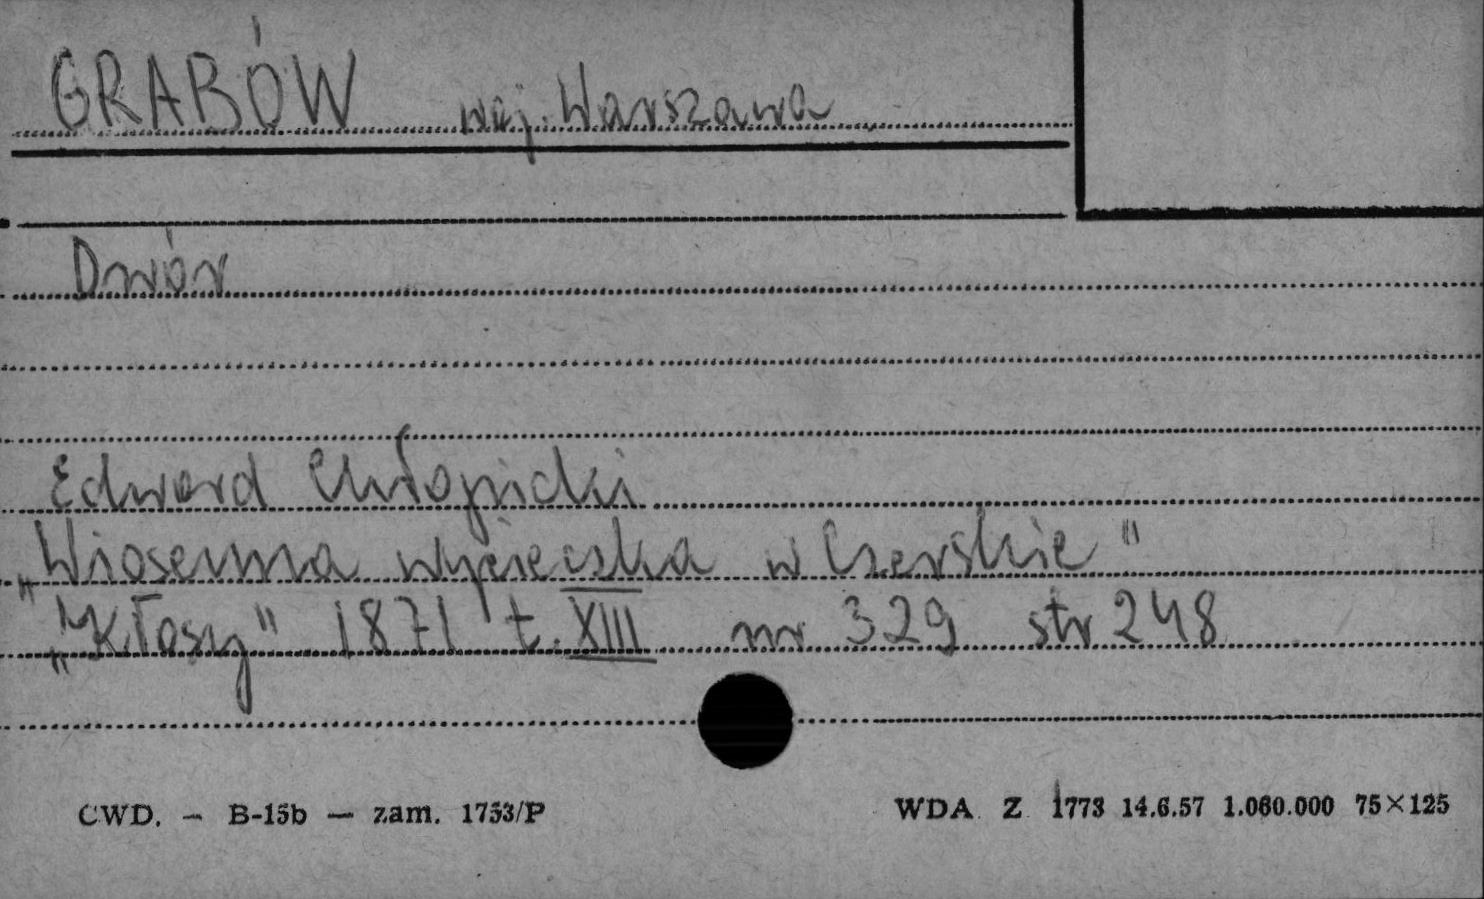 GRABÓW woj. Warszawa
Dwór
Edward Chłopicki
„Wiosenna wycieczka w Czerskie"
„Kłosy" 1871 t. XIII nr 329 str 248
CWD. — B-15b — zam. 1753/P
WDA Z 1773 14.6.57 1.060.000 75×125